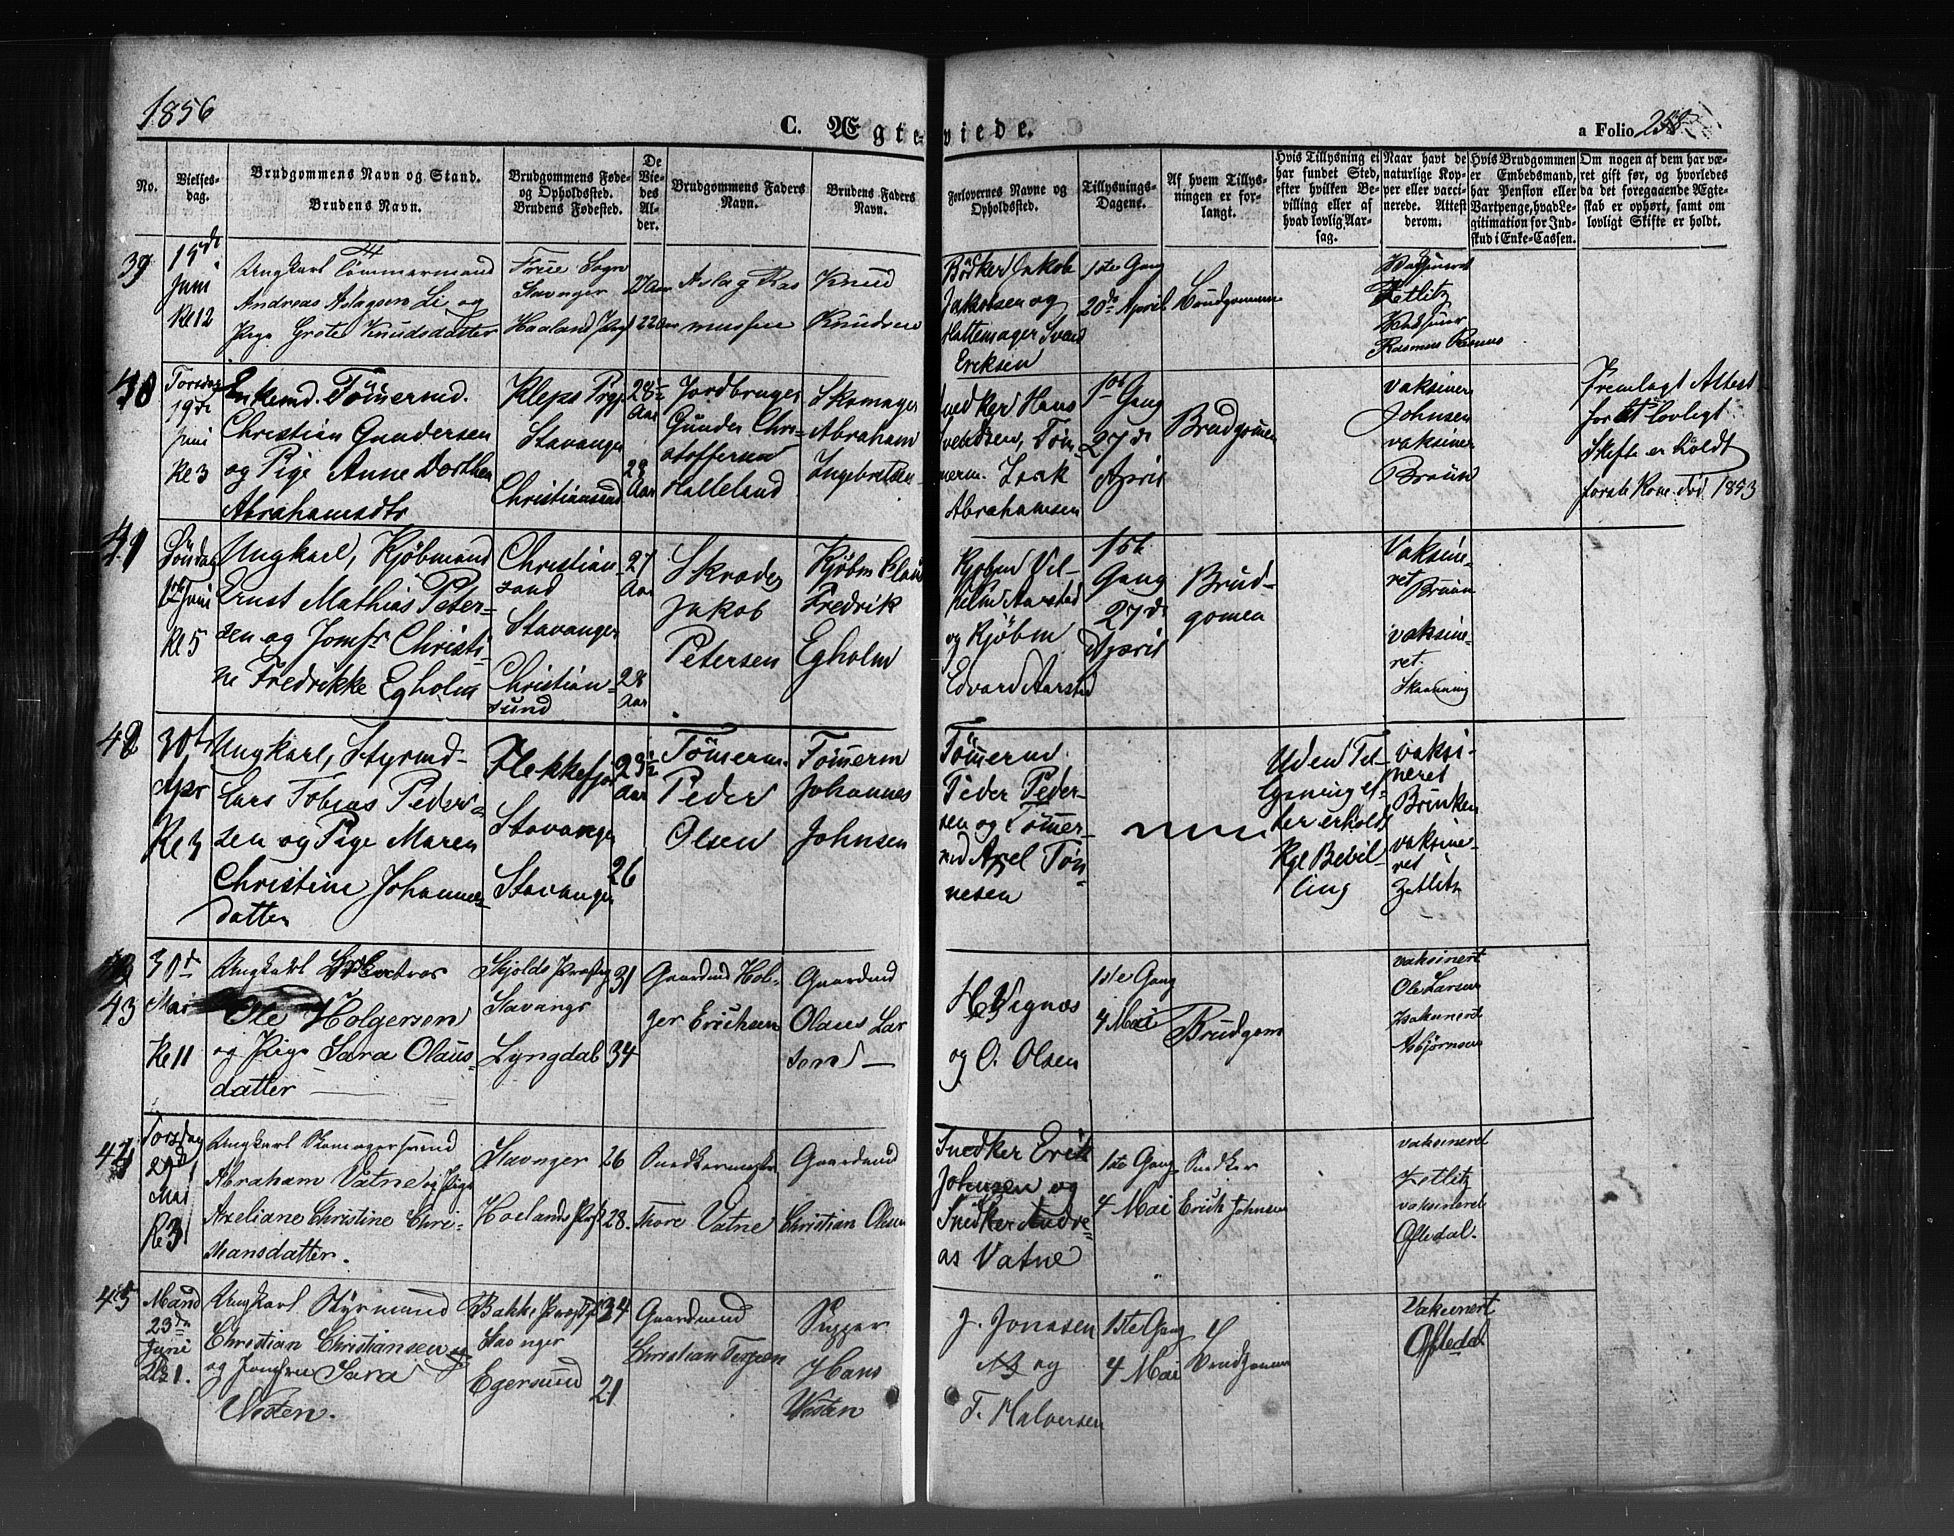 1856
C. Ægteviede.
a Folio 258
No.
Vielses-dag.
Brudgommens Navn og Stand.
Brudens Navn.
Brudgommens Føde-
og Opholdssted.
Brudens Fødested.
De
Vie-
des
Al-
der.
Brudgommens Faders
Navn.
Brudens Faders
Navn.
Forlovernes Navne og
Opholdssted.
Tillysnings-
Dagene.
Af hvem Tillys-
ningen er for-
langt.
Hvis Tillysning ei
har fundet Sted,
efter hvilken Be-
villing eller af
hvad lovlig Aar-
sag.
Naar havt de
naturlige Kop-
per eller vacci-
nerede. Attest
derom.
Hvis Brudgommen
er Embedsmand,
har Pension eller
Vartpenge, hvad Le-
gitimation for Ind-
skud i Enke-Cassen.
Om nogen af dem har væ-
ret gift før, og hvorledes
da det foregaaende Ægte-
skab er ophørt, samt om
lovligt Skifte er holdt.
39
19de
Juni
Kl 12
Ungkarl Tömmermand
Andreas Aslagsen Li og
Pige Grete Knudsdatter
Frue Sogn
Stavanger
Haaland Prgj
27 Aar
22 Aar
Aslag Ras
mussen
Knud
Knudsen
Bödker Jakob
Jakobsen og
Hattemager Svend
Eriksen
1ste Gang
20de April
Brudgommen
Vaksineret
Zetlitz
Rasmus
40
Torsdag
19de
Juni
Kl 3
Enkemd. Tömermd.
Christian Gundersen
og Pige Anne Dorthea
Abrahamsdtr
Kleps Prgj
Stavanger
Christiansund
28½
Aar
28
Aar
Jordbruger
Gunder Chri-
stoffersen
Halleland
Skomager
Abraham
Ingebretsen
Snedker Hans
Svendsen, Töm
merm. Isak
Abrahamsen
1ste
Gang
27de
April
Brudgomen
vaksiner
Johnsen
vaksiner
Bruun
Fremlagt Attest
for at lovligt
Skifte er holdt
forste Kone död 1853
41
Söndag
Juni
Kl 5
Ungkarl, Kjöbmand
Ernst Mathias Peter-
sen og Jomfr Christi-
ne Fredrikke Egholm
Christian-
sand
Stavanger
Christian-
sund
27
Aar
28
Aar
Skræder
Jakob
Petersen
Kjöbm Claus
Fredrik
Egholm
Kjöbm Vil-
helm Aarstad
og Kjöbm
Edvard Aarstad
1ste
Gang
27de
April
Brud-
gomen
Vaksine-
ret
Bruun
vaksine-
ret.
42
30te
Apr
Kl 3
Ungkarl, Styrmd-
Lars Tobias Peder-
sen og Pige Maren
Christine Johannes-
datter
Flekkefjor
Stavanger
Stavanger
23½
Aar
26
Tömerm.
Peder
Olsen
Tömerm
Johannes
Johnsen
Tömermd.
Peder Peder-
sen og Tömer-
md Axel Tön-
nesen
Uden Til-
lysning ef-
ter erholdt
Kgl Bevil-
ling
vaksi-
neret
Brinken
vaksine-
ret
Zetlitz
43
30d
Mai
Kl 11
Ungkarl
Ole Holgersen
og Pige Sara Olaus-
datter
Skjolds Præstegj
Stavanger
Lyngdal
31
34
Gaardmd Hol-
ger Erichsen
Gaardmd
Olaus Lar
sen —
H Vignæs
og O. Olsen
1ste Gang
4 Mai
Brudgom
vaksinert
Ole Larsen
Vaksinert
Asbjörnsen
44
Torsdag
29d
Mai
Kl 3
Ungkarl Skomagersvend
Abraham Vatne og Pige
Axeliane Christine Chri-
stiansdatter.
Stavanger
Haalands Prgj
26
28.
Snedkermester
Thore Vatne
Gaardmd
Christian Olsen
Snedker Erik
Johnsen og
Snedker Andre-
as Vatne
1ste Gang
4 Mai
Snedker
Erich Johnsen
vaksineret
Zetlitz
vaksineret
Oftedal.
45
Mand
23de
Juni
Kl 1.
Ungkarl Styrmand
Christian Christiansen
og Jomfru Sara
Nesten.
Bakke Præstgj
Stavanger
Egersund
34
21
Gaardmd
Christian Terjesen
Skipper
Hans
Nesten
J. Jonasen
og
T. Halversen
1ste Gang
4 Mai
Brudgommen
Vaksinert
Oftedal